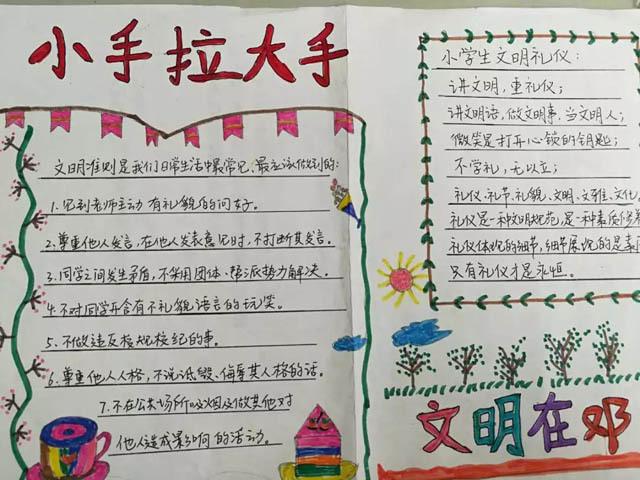 小手拉大手
文明准则是我们日常生活中最常见、最应该做到的:
1.见到老师主动有礼貌的问好。
2.尊重他人发言,在他人发表意见时,不打断其发言。
3.同学之间发生矛盾,不采用团体、帮派势力解决。
4.不对同学开含有不礼貌语言的玩笑。
5.不做违反校规校纪的事。
6.尊重他人人格,不说诋毁、侮辱其人格的话。
7.不在公共场所吸烟及做其他对
他人造成影响的活动。
小学生文明礼仪:
讲文明,重礼仪;
讲文明语,做文明事,当文明人;
微笑是打开心锁的钥匙;
不学礼,无以立;
礼仪、礼节、礼貌、文明、文雅、文化。
礼仪是一种文明规范,是一种素质修养
礼仪体现的细节,细节展现的是素
只有礼仪才是永恒。
文明在邓